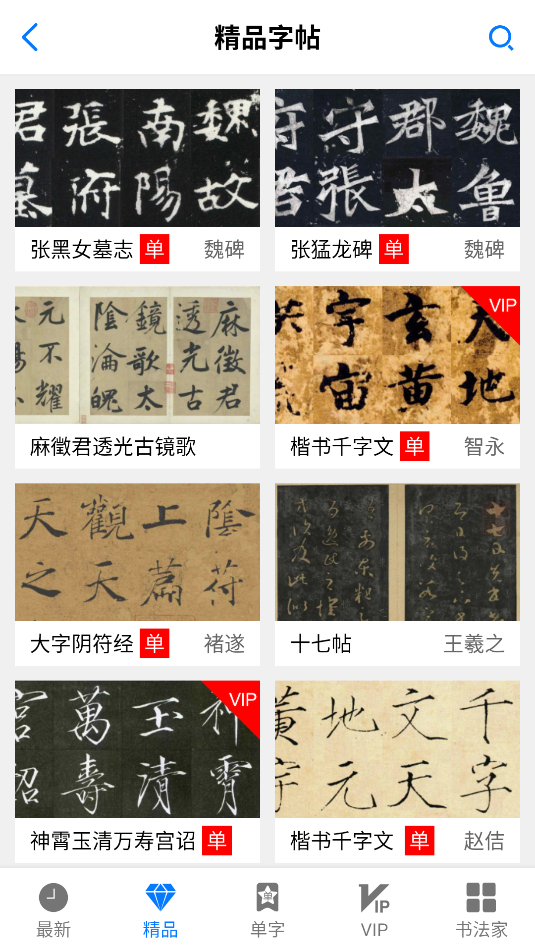 精品字帖
君 張 南 魏
墓 府 陽 故
张黑女墓志 单 魏碑
府 守 郡 魏
君 張 太 鲁
张猛龙碑 单 魏碑
元 陰 鏡 透 麻
不 淪 歌 光 徵
耀 魄 太 古 君
麻徵君透光古镜歌
宇 玄 天
宙 黄 地
VIP
楷书千字文 单 智永
天 觀 上 陰
之 天 篇 符
大字阴符经 单 褚遂
十七帖 王羲之
宫 萬 玉 神
詔 壽 清 霄
VIP
神霄玉清万寿宫诏 单
黃 地 文 千
宇 元 天 字
楷书千字文 单 赵佶
最新 精品 单字 VIP 书法家
单
VIP